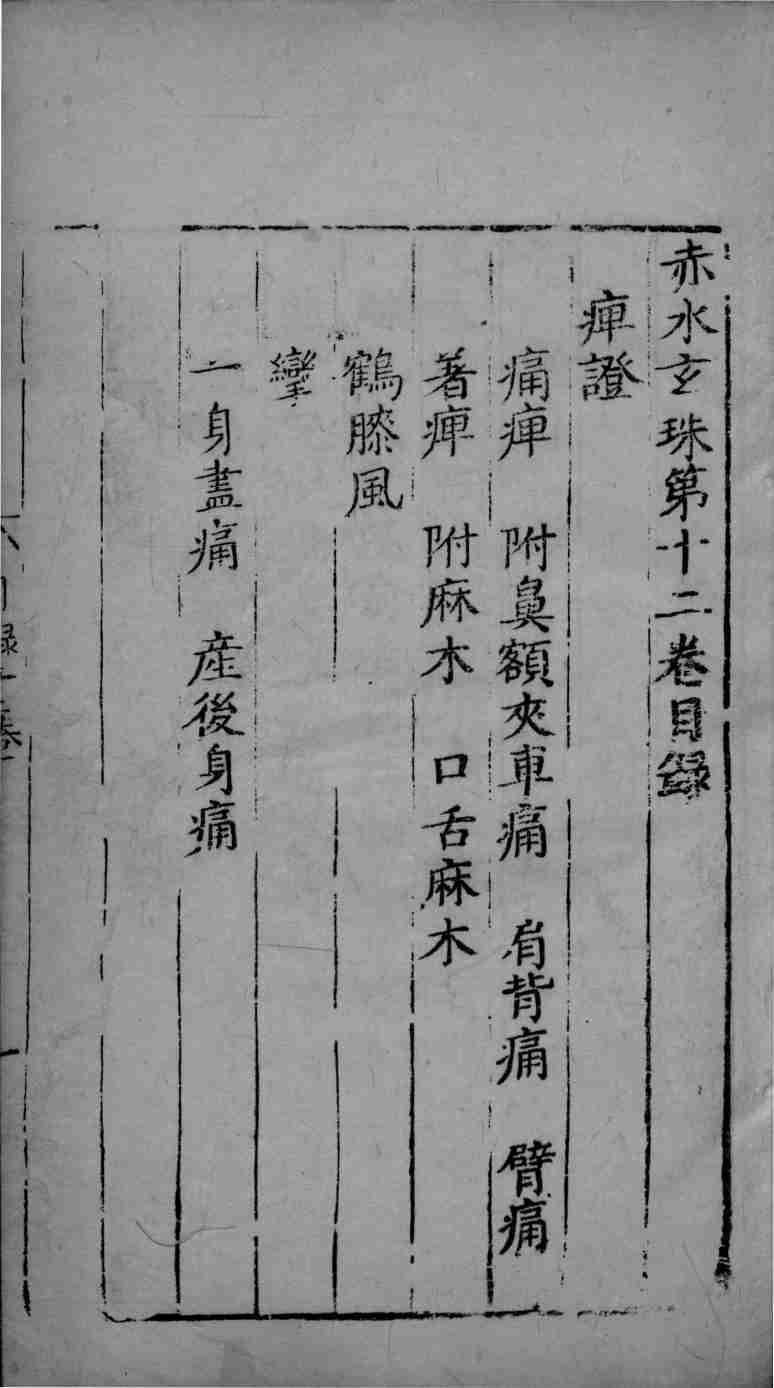 赤水玄珠第十二卷目錄
痺證
痛痺 附鼻額夾車痛 肩背痛 臂痛
著痺 附麻木 口舌麻木
鶴膝風
攣
一身盡痛 産後身痛